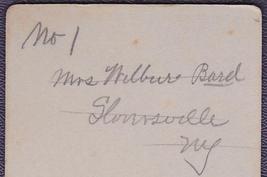 No 1
Mrs Wilbur Bard
Gloversville
NY